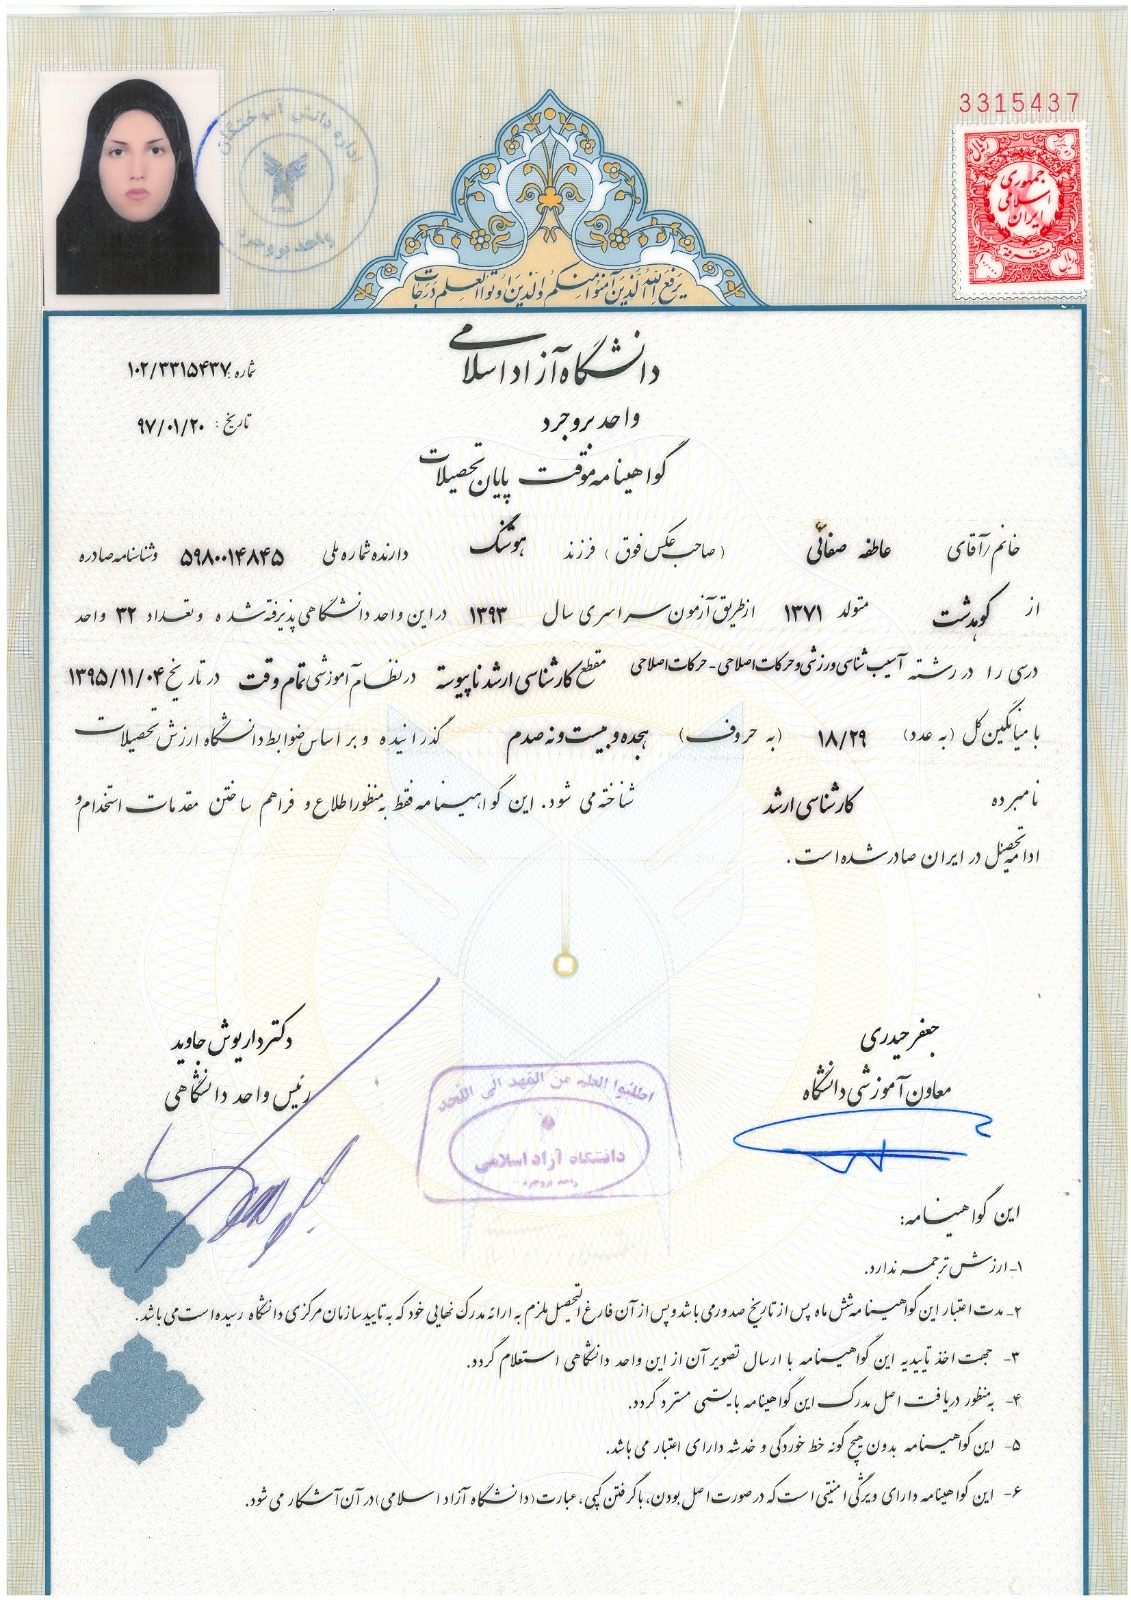 اداره دانش آموختگان
واحد بروجرد
3315437
جمهوری
اسلامی
ایران
متفرقه
ریال
یرفع الله الذین آمنوا منکم والذین اوتوا العلم درجات
دانشگاه آزاد اسلامی
واحد بروجرد
گواهینامه موقت پایان تحصیلات
شماره: ۱۰۲/۳۳۱۵۴۳۷
تاریخ: ۹۷/۰۱/۲۰
خانم/آقای عاطفه صفائی (صاحب عکس فوق) فرزند هوشنگ دارنده شماره ملی ۵۹۸۰۰۱۴۸۴۵ و شناسنامه صادره
از کوهدشت متولد ۱۳۷۱ از طریق آزمون سراسری سال ۱۳۹۳ در این واحد دانشگاهی پذیرفته شده و تعداد ۳۲ واحد
درسی را در رشته آسیب شناسی ورزشی و حرکات اصلاحی - حرکات اصلاحی مقطع کارشناسی ارشد ناپیوسته در نظام آموزشی تمام وقت در تاریخ ۱۳۹۵/۱۱/۰۴
با میانگین کل (به عدد) ۱۸/۲۹ (به حروف) هجده و بیست و نه صدم گذرانیده و بر اساس ضوابط دانشگاه ارزش تحصیلات
نامبرده کارشناسی ارشد شناخته می شود. این گواهینامه فقط به منظور اطلاع و فراهم ساختن مقدمات استخدام و
ادامه تحصیل در ایران صادر شده است.
جعفر حیدری
معاون آموزشی دانشگاه
دکتر داریوش جاوید
رئیس واحد دانشگاهی
اطلبوا العلم من المهد الی اللحد
دانشگاه آزاد اسلامی
واحد بروجرد
این گواهینامه:
۱- ارزش ترجمه ندارد.
۲- مدت اعتبار این گواهینامه شش ماه پس از تاریخ صدور می باشد و پس از آن فارغ التحصیل ملزم به ارائه مدرک نهایی خود که به تایید سازمان مرکزی دانشگاه رسیده است می باشد.
۳- جهت اخذ تاییدیه این گواهینامه با ارسال تصویر آن از این واحد دانشگاهی استعلام گردد.
۴- به منظور دریافت اصل مدرک این گواهینامه بایستی مسترد گردد.
۵- این گواهینامه بدون هیچ گونه خط خوردگی و خدشه دارای اعتبار می باشد.
۶- این گواهینامه دارای ویژگی امنیتی است که در صورت اصل بودن، با گرفتن کپی، عبارت (دانشگاه آزاد اسلامی) در آن آشکار می شود.